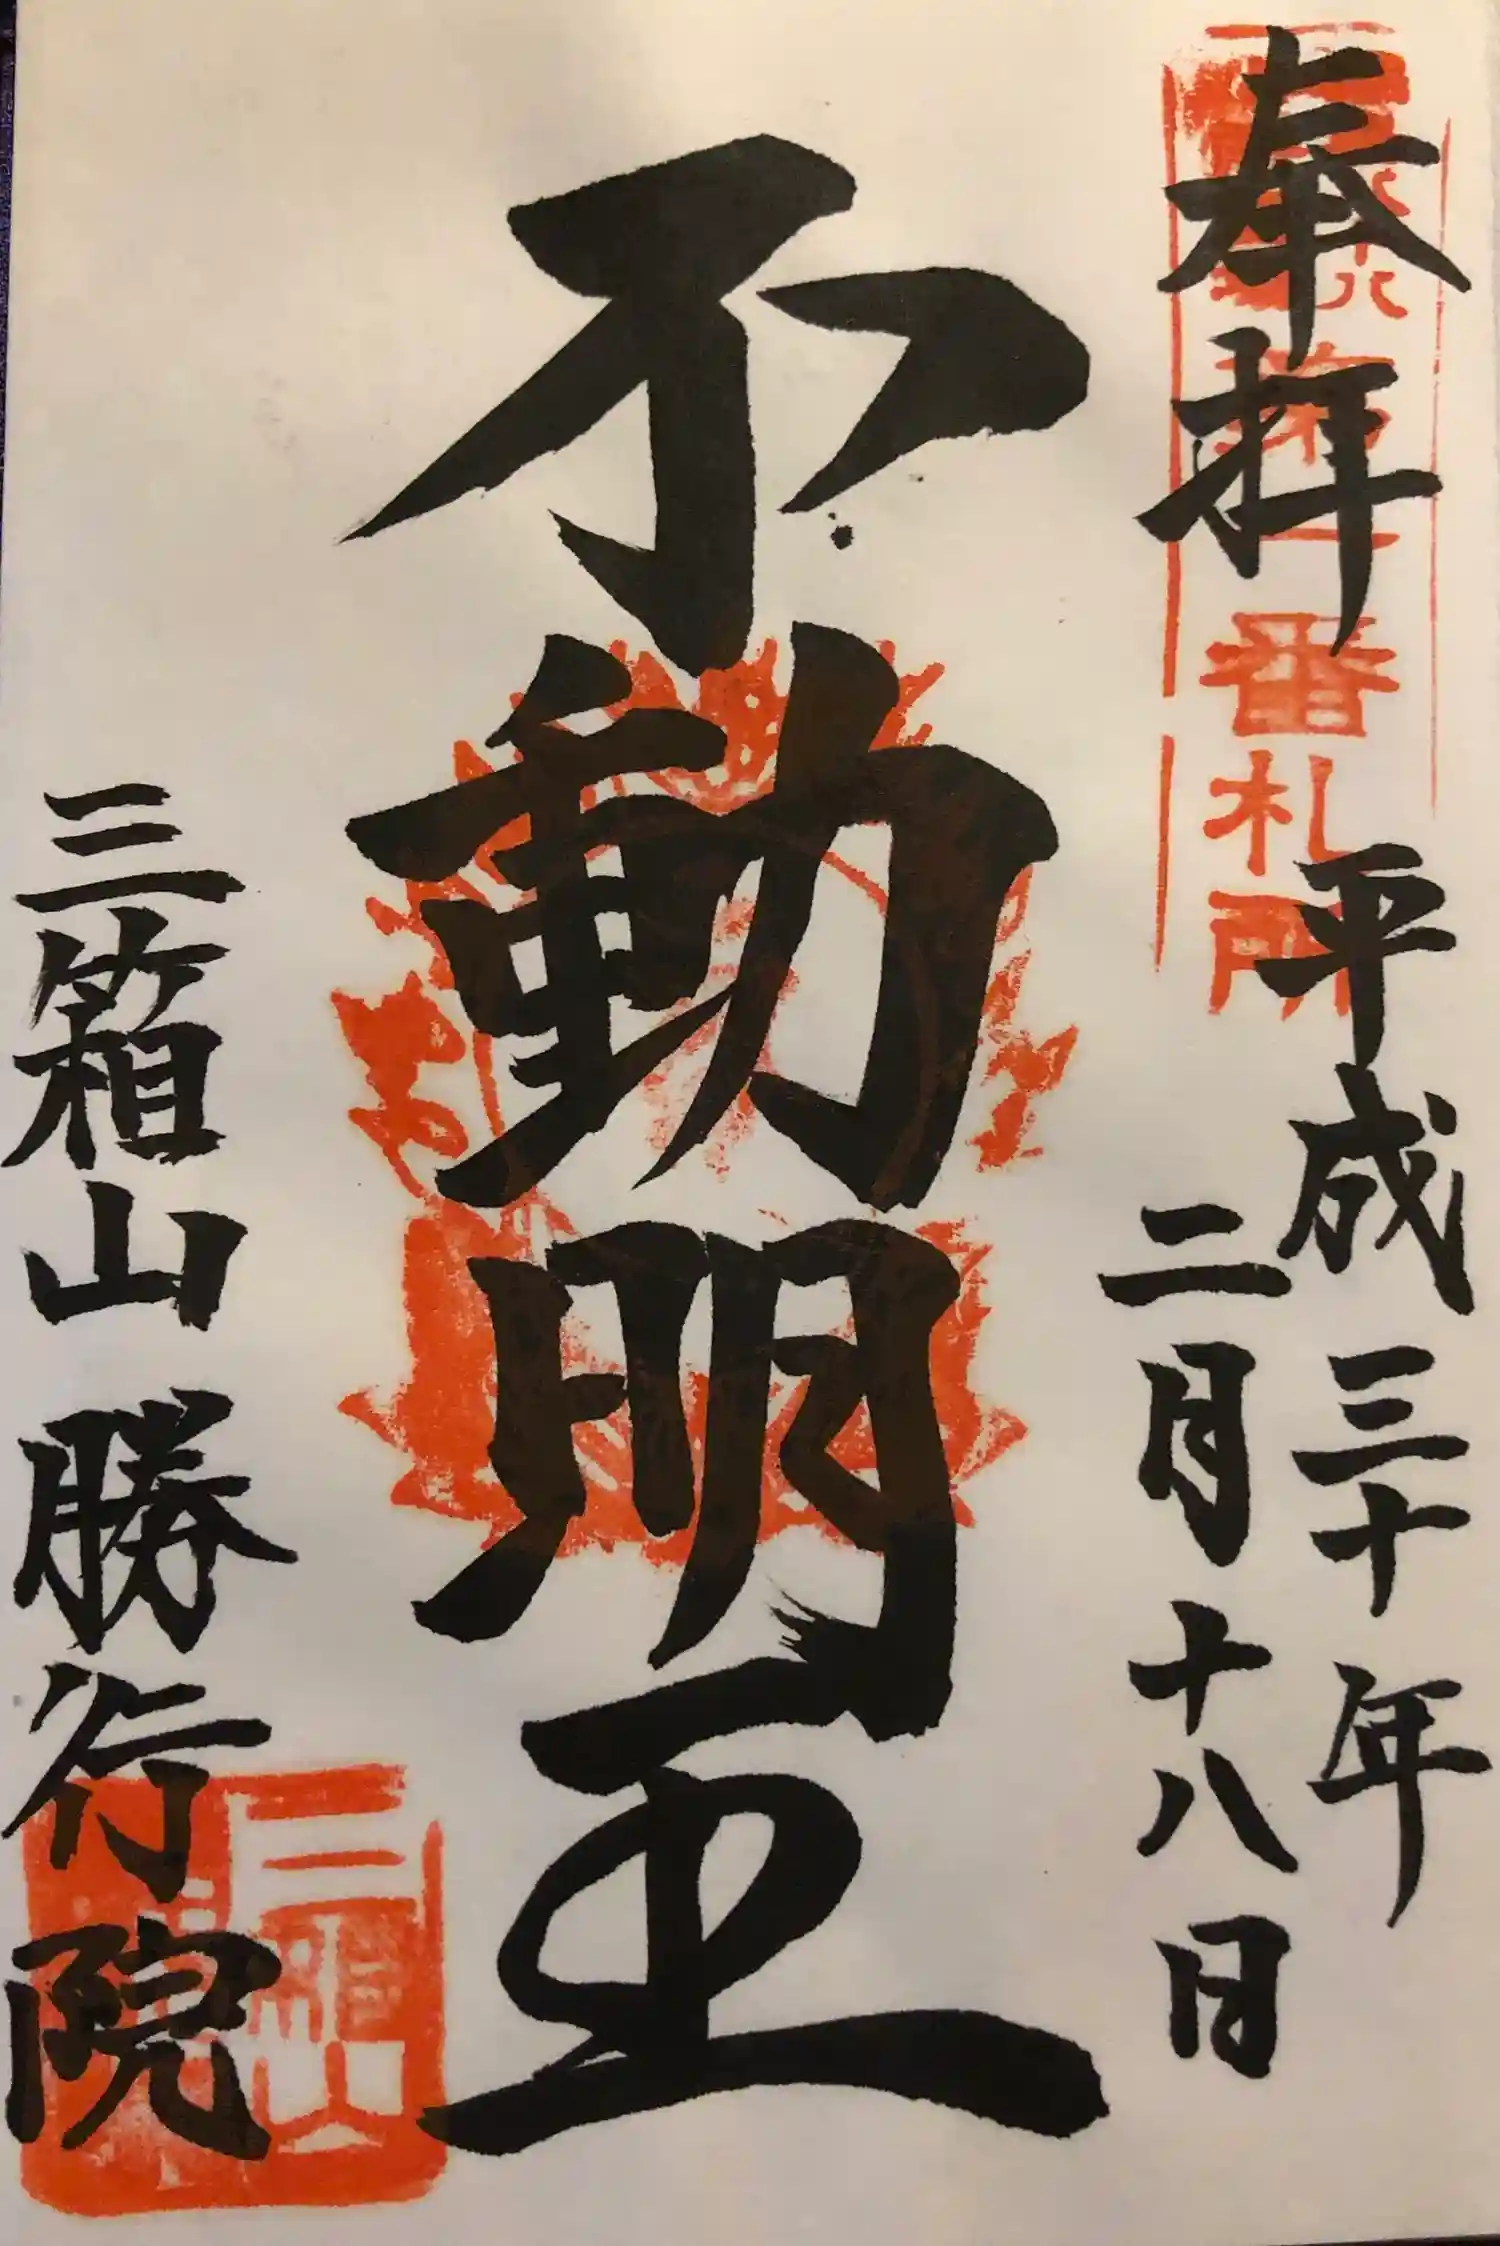 奉拝
番札所
平成三十年
二月十八日
不動明王
三箱山勝行院
三箱山